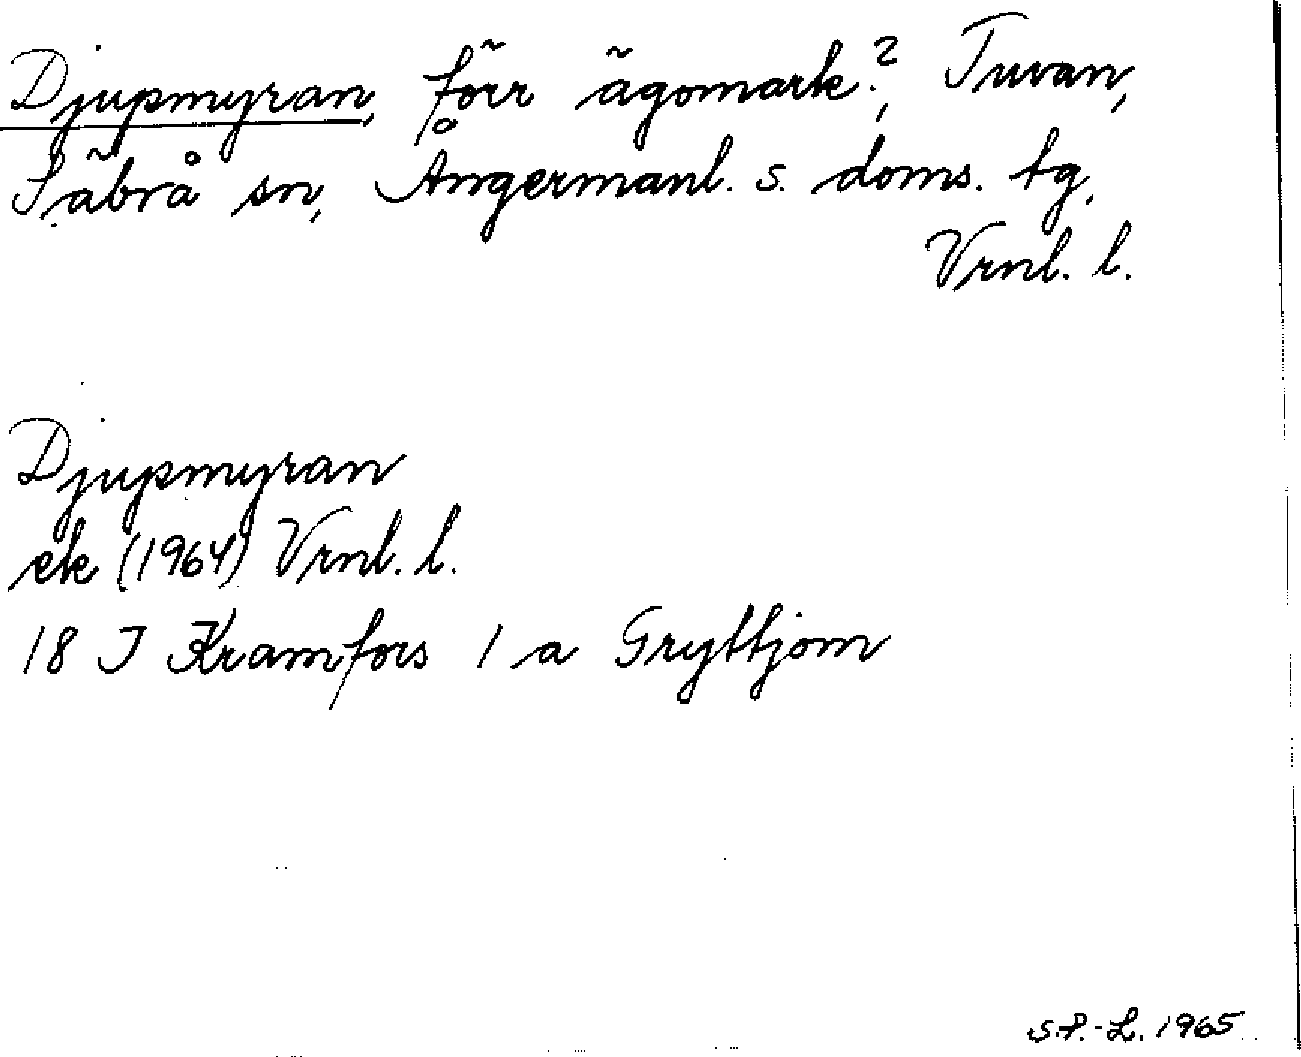 Djupmyran, förr ägomark?, Tuvan,
Säbrå sn, Ångermanl. s. doms. tg,
Vrnl. l.
Djupmyran
ek (1964) Vrnl. l.
18 I Kramfors 1 a Gryttjom
S.P.-L. 1965